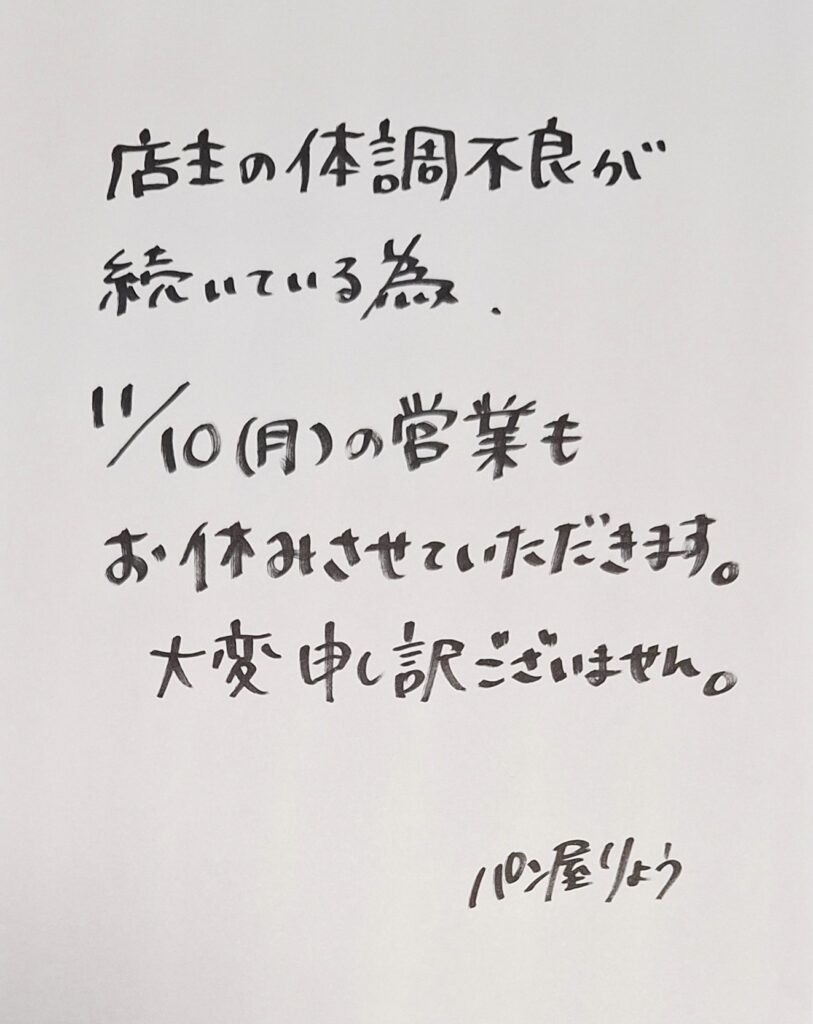 店主の体調不良が
続いている為、
11/10(月)の営業も
お休みさせていただきます。
大変申し訳ございません。
パン屋りょう